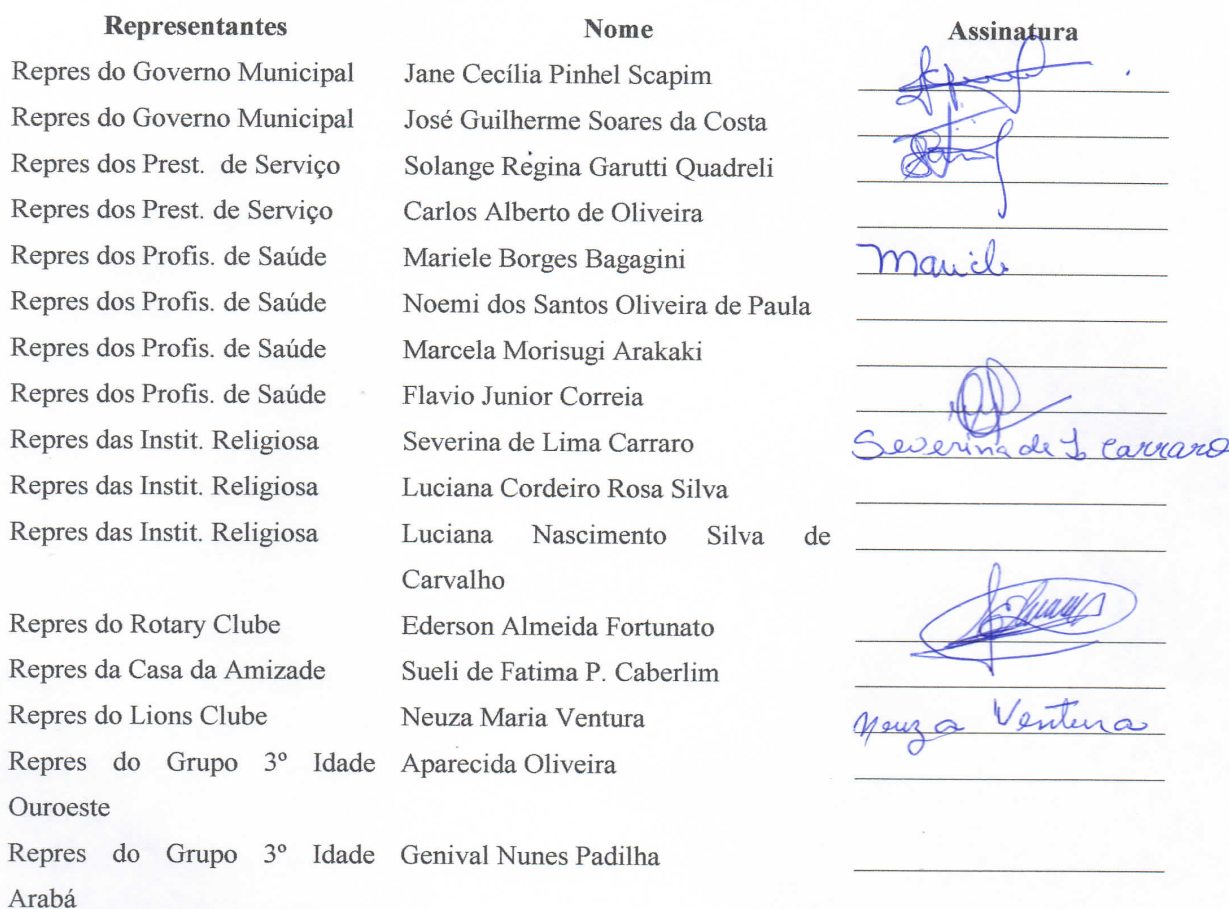 Representantes Nome Assinatura
Repres do Governo Municipal Jane Cecília Pinhel Scapim
Repres do Governo Municipal José Guilherme Soares da Costa
Repres dos Prest. de Serviço Solange Regina Garutti Quadreli
Repres dos Prest. de Serviço Carlos Alberto de Oliveira
Repres dos Profis. de Saúde Mariele Borges Bagagini
Repres dos Profis. de Saúde Noemi dos Santos Oliveira de Paula
Repres dos Profis. de Saúde Marcela Morisugi Arakaki
Repres dos Profis. de Saúde Flavio Junior Correia
Repres das Instit. Religiosa Severina de Lima Carraro Severina de L Carraro
Repres das Instit. Religiosa Luciana Cordeiro Rosa Silva
Repres das Instit. Religiosa Luciana Nascimento Silva de
Carvalho
Repres do Rotary Clube Ederson Almeida Fortunato
Repres da Casa da Amizade Sueli de Fatima P. Caberlim
Repres do Lions Clube Neuza Maria Ventura Neuza Ventura
Repres do Grupo 3º Idade Aparecida Oliveira
Ouroeste
Repres do Grupo 3º Idade Genival Nunes Padilha
Arabá